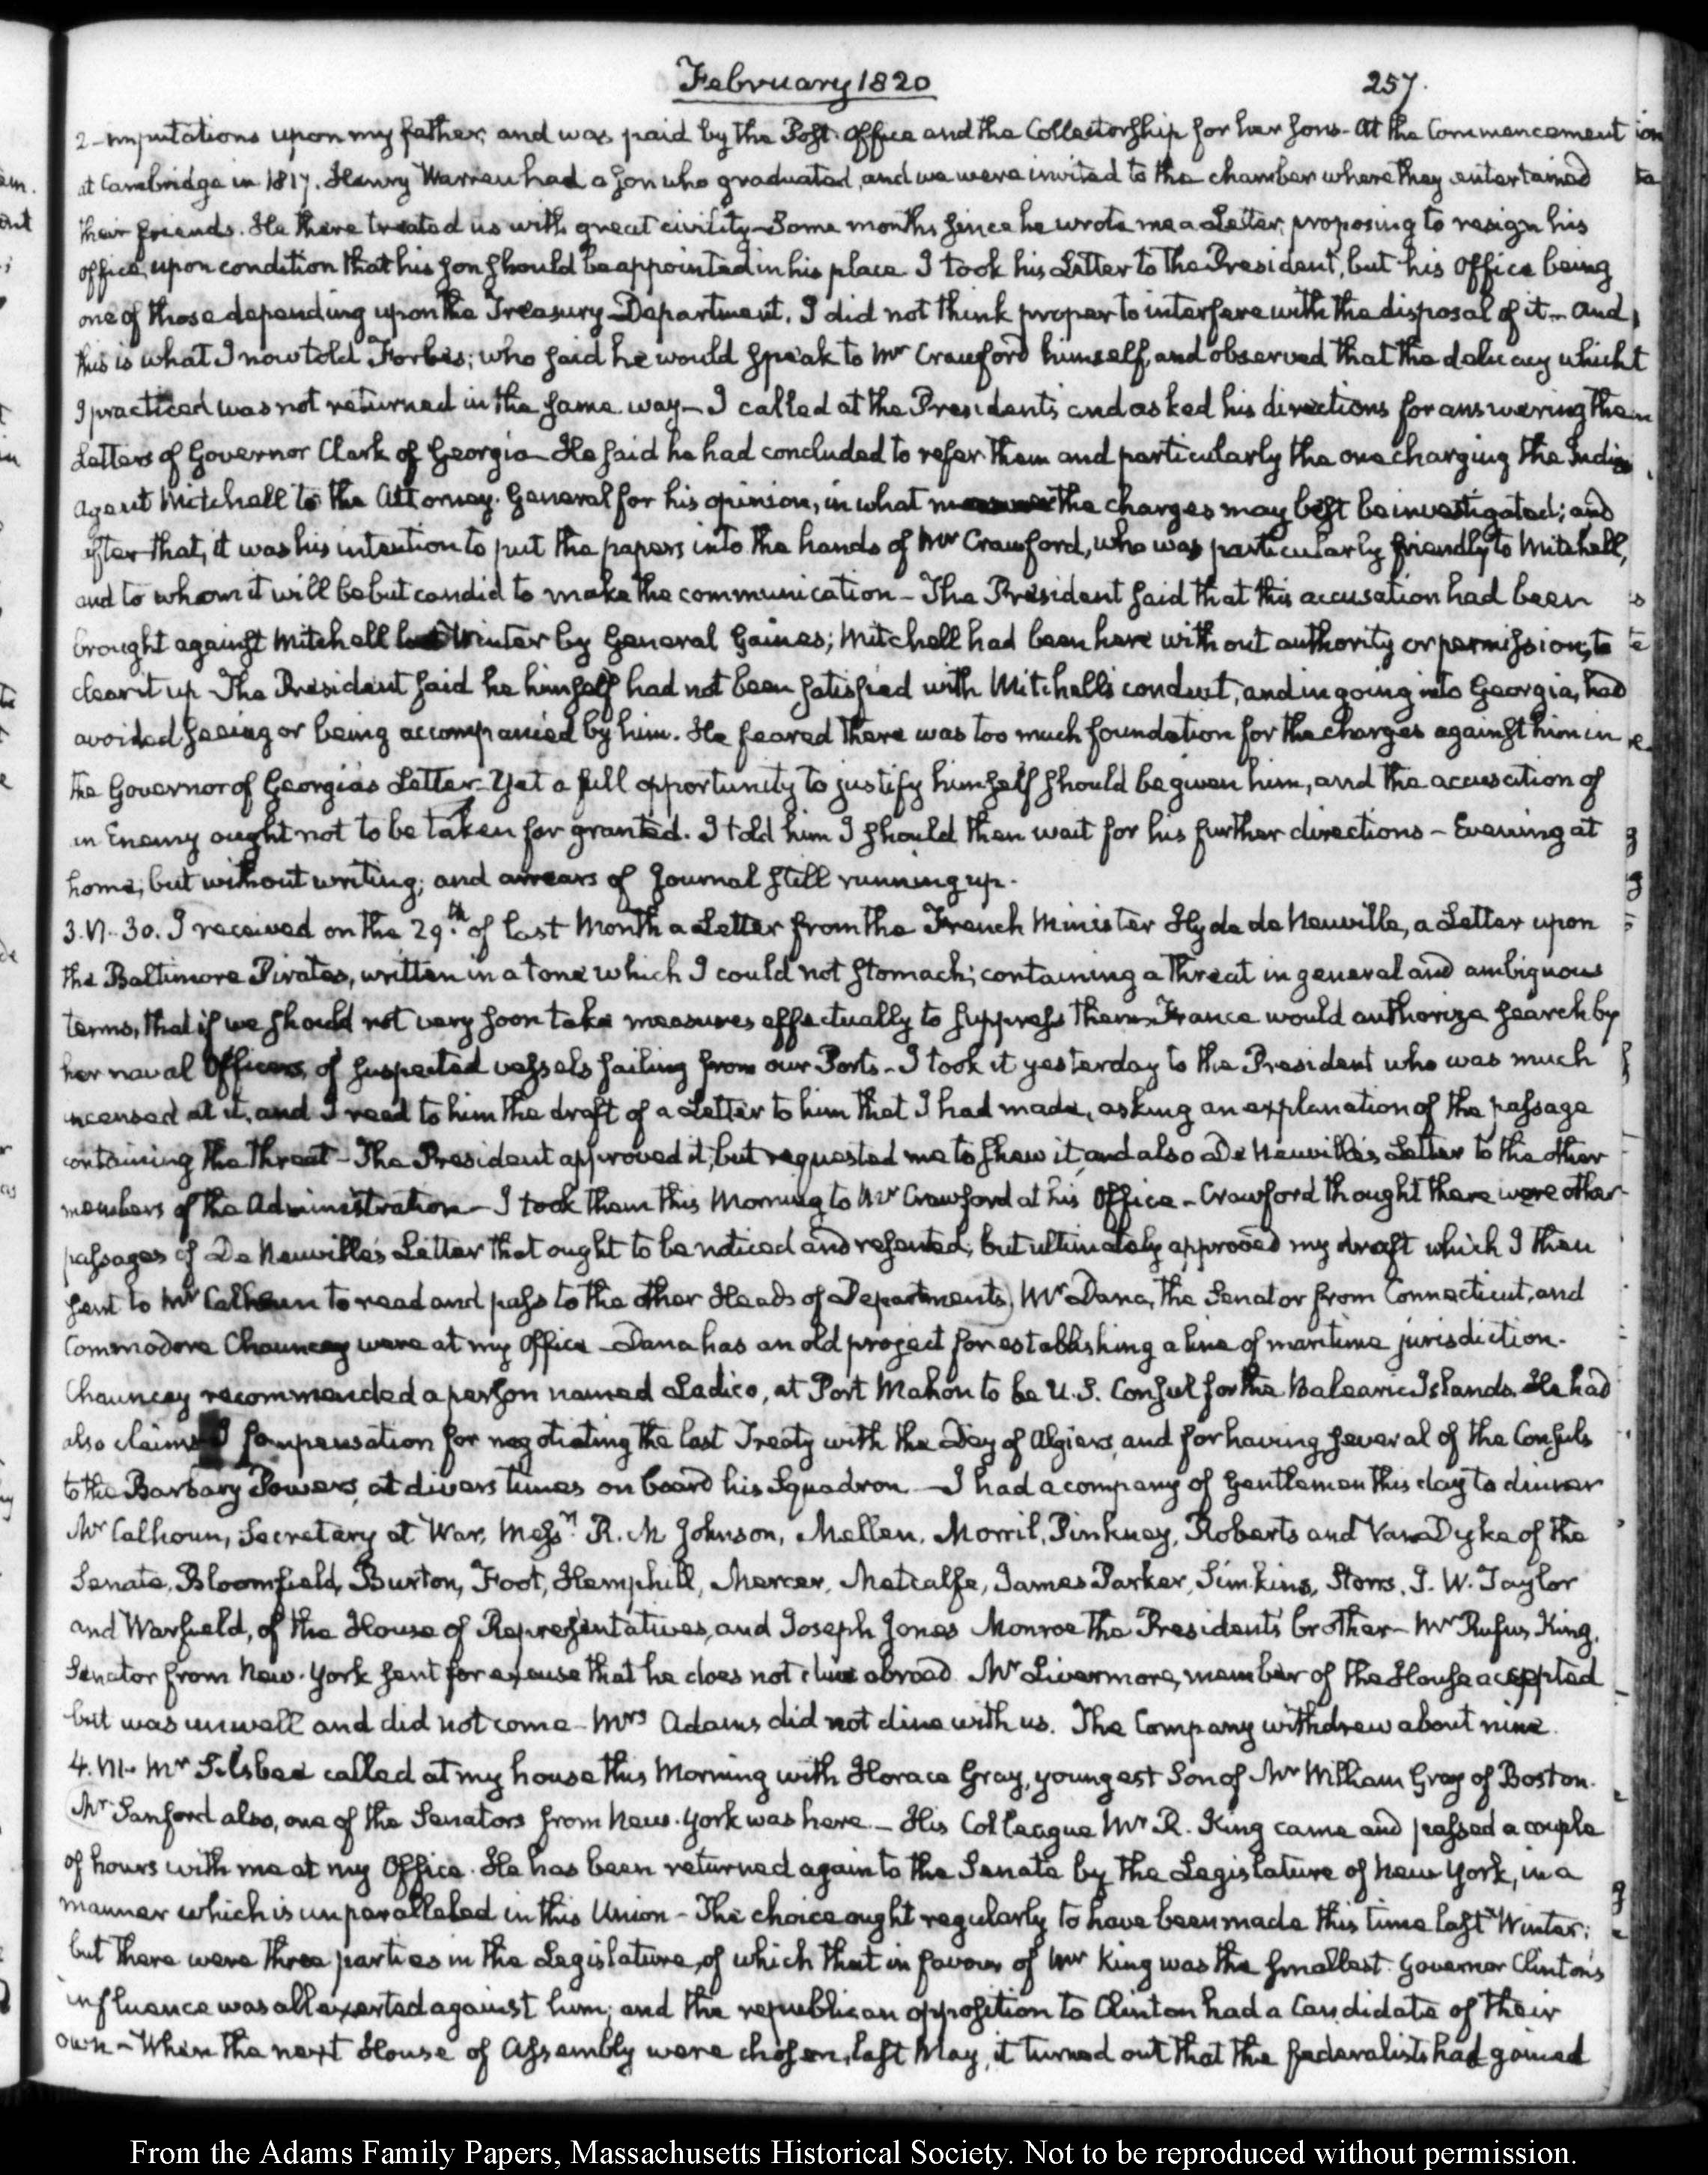 February 1820
257.
2 - imputations upon my father, and was paid by the Post-Office and the Collectorship for her Sons - At the Commencement
at Cambridge in 1817. Henry Warren had a son who graduated, and we were invited to the chamber where they entertained
their friends. He there treated us with great civility - Some months since he wrote me a Letter, proposing to resign his
office, upon condition that his son should be appointed in his place. I took his Letter to the President, but his Office being
one of those depending upon the Treasury Department, I did not think proper to interfere with the disposal of it - and
this is what I now told Forbes; who said he would speak to Mr Crawford himself, and observed that the delicacy which
I practiced was not returned in the same way - I called at the President's and asked his directions for answering the
Letters of Governor Clark of Georgia - He said he had concluded to refer them and particularly the one charging the Indian
Agent Mitchell to the Attorney General for his opinion, in what the charges may best be investigated; and
after that, it was his intention to put the papers into the hands of Mr Crawford, who was particularly friendly to Mitchell,
and to whom it will be but candid to make the communication - The President said that this accusation had been
brought against Mitchell last Winter by General Gaines; Mitchell had been here without authority or permission, to
clear it up - The President said he himself had not been satisfied with Mitchell's conduct, and in going into Georgia, had
avoided seeing or being accompanied by him. He feared there was too much foundation for the charges against him in
the Governor of Georgia's Letter - Yet a full opportunity to justify himself should be given him, and the accusation of
an Enemy ought not to be taken for granted. I told him I should then wait for his further directions - Evening at
home; but without writing; and arrears of Journal still running up.
3. VI. 30. I received on the 29.th of last Month a Letter from the French Minister Hyde de Neuville, a Letter upon
the Baltimore Pirates, written in a tone which I could not stomach; containing a threat in general and ambiguous
terms, that if we should not very soon take measures effectually to suppress them France would authorize search by
her naval Officers, of suspected vessels sailing from our Ports - I took it yesterday to the President who was much
incensed at it, and I read to him the draft of a Letter to him that I had made, asking an explanation of the passage
containing the threat - The President approved it, but requested me to shew it and also De Neuville's Letter to the other
members of the Administration - I took them this Morning to Mr Crawford at his Office - Crawford thought there were other
passages of De Neuville's Letter that ought to be noticed and resented; but ultimately approved my draft which I then
sent to Mr Calhoun to read and pass to the other Heads of Departments. Mr Dana, the Senator from Connecticut, and
Commodore Chauncey were at my Office - Dana has an old project for establishing a line of maritime jurisdiction.
Chauncey recommended a person named Ladico, at Port Mahon to be U.S. Consul for the Balearic Islands. He had
also claims compensation for negotiating the last Treaty with the Dey of Algiers, and for having several of the Consuls
to the Barbary Powers, at divers times on board his Squadron - I had a company of Gentlemen this day to dinner
Mr Calhoun, Secretary at War, Messrs R. M Johnson, Mellen, Morril, Pinkney, Roberts and Van Dyke of the
Senate, Bloomfield, Burton, Foot, Hemphill, Mercer, Metcalfe, James Parker, Simkins, Storrs, J. W. Taylor
and Warfield, of the House of Representatives, and Joseph Jones Monroe the President's brother - Mr Rufus King,
Senator from New-York sent for excuse that he does not dine abroad. Mr Livermore, member of the House accepted
but was unwell and did not come - Mrs Adams did not dine with us. The Company withdrew about nine.
4. VI. Mr Silsbee called at my house this Morning with Horace Gray, youngest Son of Mr William Gray of Boston.
Mr Sanford also, one of the Senators from New-York was here - His Colleague Mr R. King came and passed a couple
of hours with me at my Office. He has been returned again to the Senate by the Legislature of New York, in a
manner which is unparalleled in this Union - The choice ought regularly to have been made this time last Winter;
but there were three parties in the Legislature, of which that in favour of Mr King was the smallest. Governor Clinton's
influence was all exerted against him; and the republican opposition to Clinton had a Candidate of their
own - When the next House of Assembly were chosen, last May, it turned out that the federalists had gained
From the Adams Family Papers, Massachusetts Historical Society. Not to be reproduced without permission.